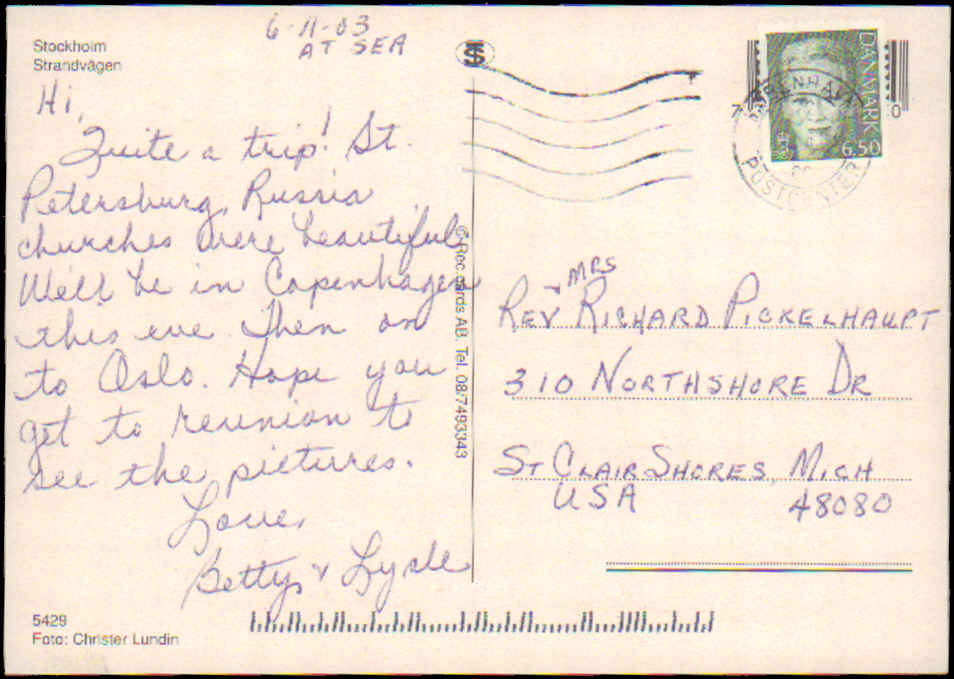 Stockholm
Strandvägen
6-11-03
AT SEA
Hi,
Quite a trip! St.
Petersburg, Russia
churches were beautiful,
We'll be in Copenhagen
this eve then on
to Oslo. Hope you
get to reunion to
see the pictures.
Love,
Betty & Lyale
5429
Foto: Christer Lundin
© Rec.cards AB. Tel. 08/7493343
DANMARK
6.50
7
0
KØBENHAVN
POSTCENTER
REV & MRS RICHARD PICKELHAUPT
310 NORTHSHORE DR
ST CLAIR SHORES, MICH
USA 48080